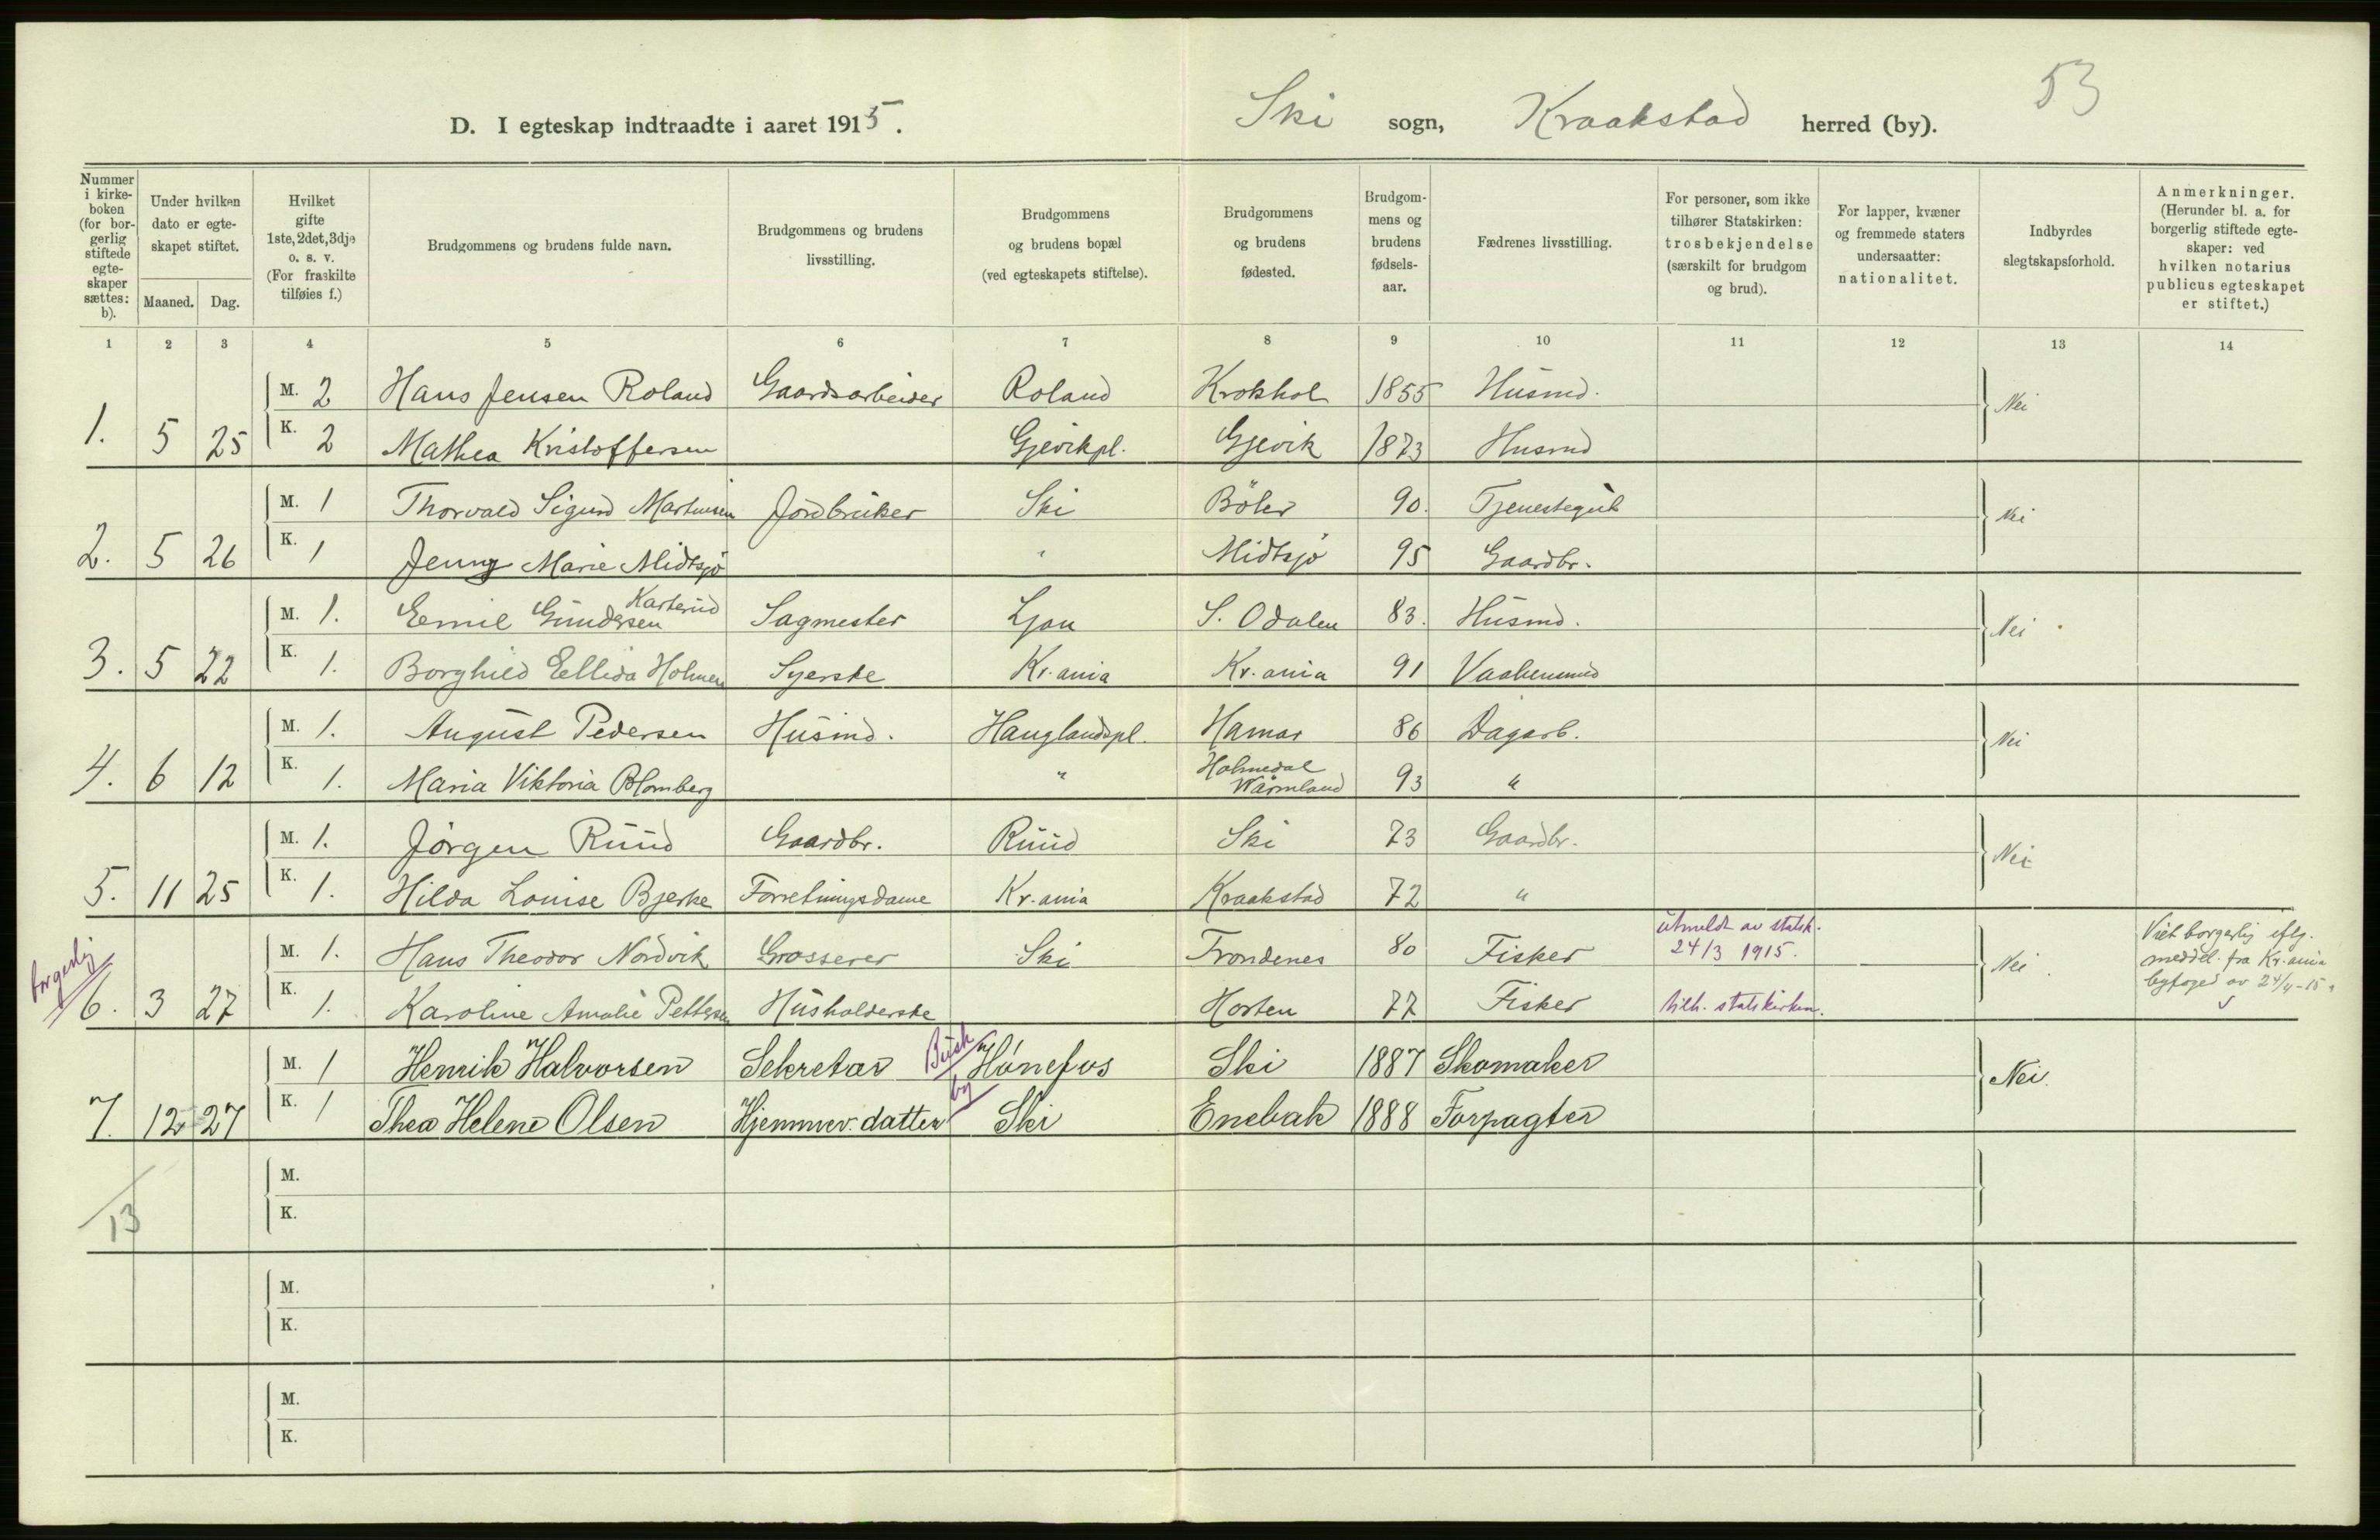 53
D. I egteskap indtraadte i aaret 1915. Ski sogn, Kraakstad herred (by).
Nummer i kirke- boken (for bor- gerlig stiftede egte- skaper sættes: b).
Under hvilken dato er egte- skapet stiftet.
Maaned. Dag.
Hvilket gifte 1ste, 2det, 3dje o. s. v. (For fraskilte tilføies f.)
Brudgommens og brudens fulde navn.
Brudgommens og brudens livsstilling.
Brudgommens og brudens bopæl (ved egteskapets stiftelse).
Brudgommens og brudens fødested.
Brudgom- mens og brudens fødsels- aar.
Fædrenes livsstilling.
For personer, som ikke tilhører Statskirken: trosbekjendelse (særskilt for brudgom og brud).
For lapper, kvæner og fremmede staters undersaatter: nationalitet.
Indbyrdes slegtskapsforhold.
Anmerkninger. (Herunder bl. a. for borgerlig stiftede egte- skaper: ved hvilken notarius publicus egteskapet er stiftet.)
1 2 3 4 5 6 7 8 9 10 11 12 13 14
M. 2 Hans Jensen Roland Gaardsarbeider Roland Krokhol 1855 Husmd. Nei
1. 5 25 K. 2 Mathea Kristoffersen Gjevikpl. Gjevik 1873 Husmd
M. 1 Thorvald Sigurd Martinsen Jordbruker Ski Böler 90. Tjenestegut Nei
2. 5 26 K. 1 Jenny Marie Midtsjö " Midtsjö 95 Gaardbr.
M. 1. Eemil Gundersen Karterud Sagmester Ljan S. Odalen 83. Husmd. Nei
3. 5 22 K. 1. Borghild Ellida Holmen Syerske Kr.ania Kr.ania 91 Vaabenmd
M. 1. August Pedersen Husmd. Hauglandspl. Hamar 86 Dagarb. Nei
4. 6 12 K. 1. Maria Viktoria Blomberg " Holmedal Wärmland 93 "
M. 1. Jörgen Ruud Gaardbr. Ruud Ski 73 Gaardbr. Nei
5. 11 25 K. 1. Hilda Louise Bjerke Forretningsdame Kr.ania Kraakstad 72 "
borgerlig M. 1. Hans Theodor Nordvik Grosserer Ski Trondenes 80 Fisker utmeldt av statsk. 24/3 1915. Nei. Viet borgerlig iflg. meddel. fra Kr.ania byfoged av 24/4-15.
6. 3 27 K. 1. Karoline Amalie Pettersen Husholderske Horten 77 Fisker tilh. statskirken.
M. 1 Henrik Halvorsen Sekretær Busk Hönefos Ski 1887 Skomaker Nei.
7. 12 27 K. 1 Thea Helene Olsen Hjemmev. datter by Ski Enebak 1888 Forpagter
M.
13 K.
M.
K.
M.
K.